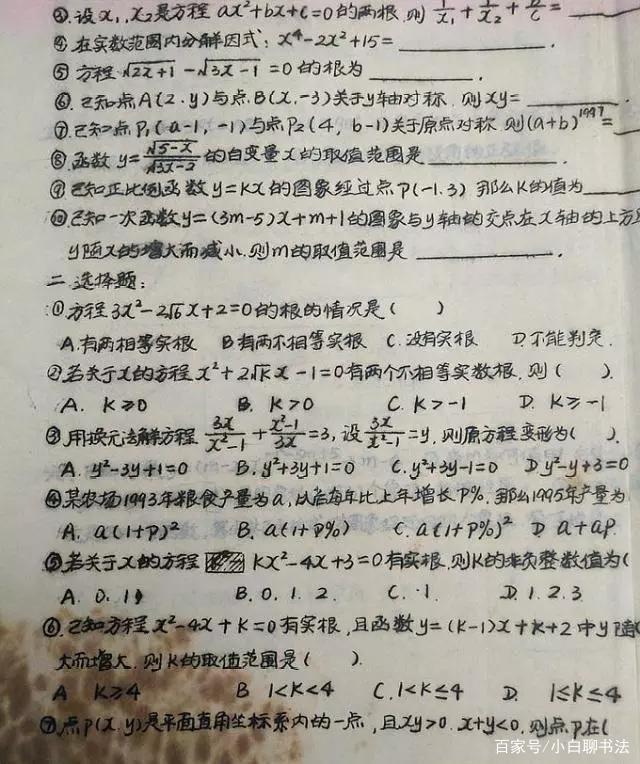 ③.设x₁,x₂是方程 ax²+bx+c=0的两根,则 1/x₁+1/x₂+b/c=
④.在实数范围内分解因式: x⁴-2x²+15=________.
⑤方程√2x+1-√3x-1=0的根为________.
⑥.已知点A(2·y)与点B(x,-3)关于y轴对称,则xy=________
⑦已知点P₁(a-1,-1)与点P₂(4,b-1)关于原点对称,则(a+b)¹⁹⁹⁷=
⑧.函数y=√5-x/√3x-2的自变量x的取值范围是________.
⑨已知正比例函数y=kx的图象经过点P(-1.3)那么k的值为
⑩已知一次函数y=(3m-5)x+m+1的图象与y轴的交点在x轴的上方
y随x的增大而减小.则m的取值范围是________.
二.选择题:
①方程3x²-2√6x+2=0的根的情况是( )
A.有两相等实根 B有两不相等实根 C.没有实根 D.不能判定.
②若关于x的方程x²+2√kx-1=0有两个不相等实数根,则( ).
A. k≥0 B. k>0 C. k>-1 D. k≥-1
③用换元法解方程3x/x²-1+x²-1/3x=3,设3x/x²-1=y,则原方程变形为( ).
A.y²-3y+1=0 B.y²+3y+1=0 C.y²+3y-1=0 D y²-y+3=0
④某农场1993年粮食产量为a,以后每年比上年增长P%.那么1995年产量为
A. a(1+P)² B. a(1+P%) C. a(1+P%)² D a+ap.
⑤若关于x的方程 kx²-4x+3=0有实根,则k的非负整数值为(
A. 0.1 B. 0.1.2. C. 1. D. 1.2.3.
⑥.已知方程x²-4x+k=0有实根,且函数y=(k-1)x+k+2中y随
大而增大.则k的取值范围是( ).
A k≥4 B 1<k<4 C.1<k≤4 D. 1≤k≤4
⑦点P(x.y)是平面直角坐标系内的一点,且xy>0.x+y<0.则点P在(
百家号/小白聊书法